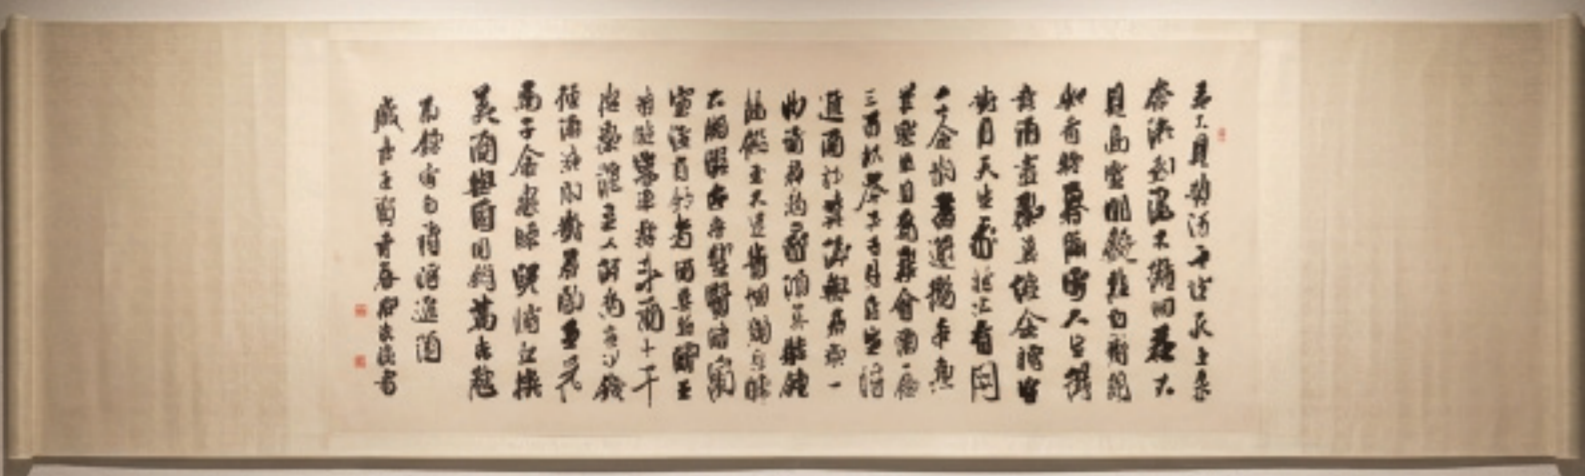 君不見黃河之水天上來
奔流到海不復回君不
見高堂明鏡悲白髮朝
如青絲暮成雪人生得
意須盡歡莫使金樽空
對月天生我材必有用
千金散盡還復來烹
羊宰牛且為樂會須一飲
三百杯岑夫子丹丘生將
進酒杯莫停與君歌一
曲請君為我傾耳聽鐘
鼓饌玉不足貴但願長醉
不願醒古來聖賢皆寂
寞惟有飲者留其名陳王
昔時宴平樂斗酒十千
恣歡謔主人何為言少錢
徑須沽取對君酌五花
馬千金裘呼兒將出換
美酒與爾同銷萬古愁
右錄李白詩將進酒
歲在書